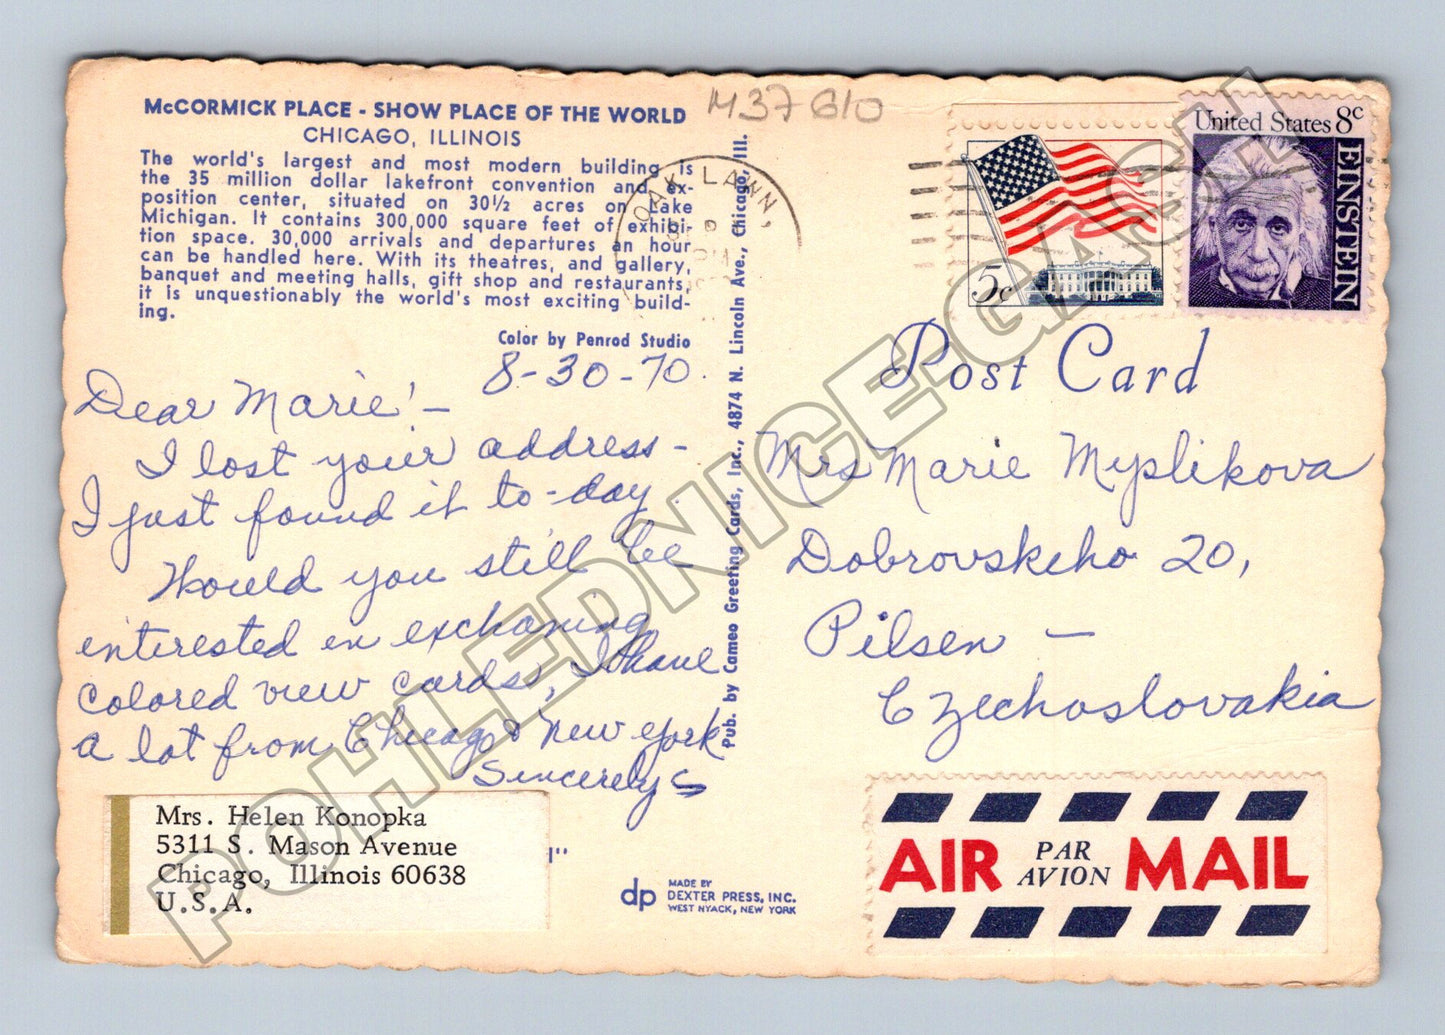 M37 610
McCORMICK PLACE - SHOW PLACE OF THE WORLD
CHICAGO, ILLINOIS
The world's largest and most modern building is
the 35 million dollar lakefront convention and ex-
position center, situated on 30½ acres on Lake
Michigan. It contains 300,000 square feet of exhibi-
tion space. 30,000 arrivals and departures an hour
can be handled here. With its theatres, and gallery,
banquet and meeting halls, gift shop and restaurants,
it is unquestionably the world's most exciting build-
ing.
Color by Penrod Studio
8-30-70.
Dear Marie! -
I lost your address -
I just found it to-day
Would you still be
interested in exchaning
colored view cardss, I have
a lot from Chicago & New York
Sincerely
Mrs. Helen Konopka
5311 S. Mason Avenue
Chicago, Illinois 60638
U.S.A.
dp
MADE BY
DEXTER PRESS, INC.
WEST NYACK, NEW YORK
Pub. by Cameo Greeting Cards, Inc., 4874 N. Lincoln Ave., Chicago, Ill.
OAK LAWN,
PM
5c
United States 8c
EINSTEIN
Post Card
Mrs Marie Myslikova
Dobrovskeho 20,
Pilsen -
Czechoslovakia
AIR PAR AVION MAIL
POHLEDNICE-GASH